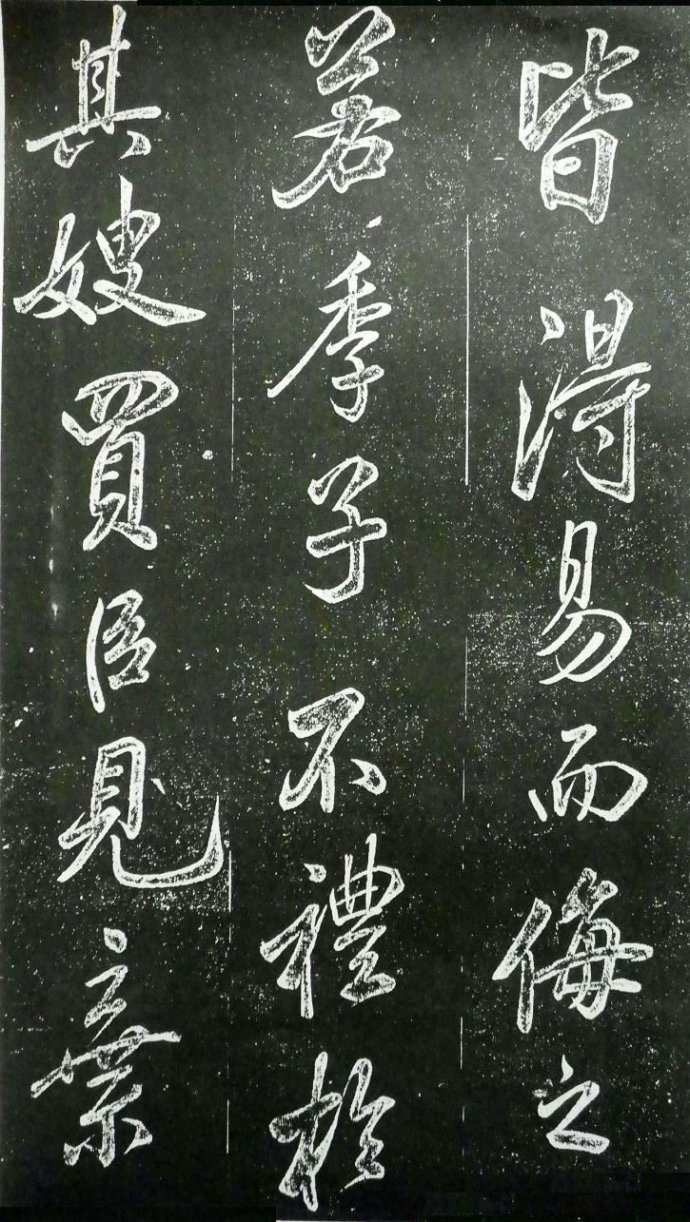 皆得易而侮之
若季子不禮於
其嫂買臣見棄